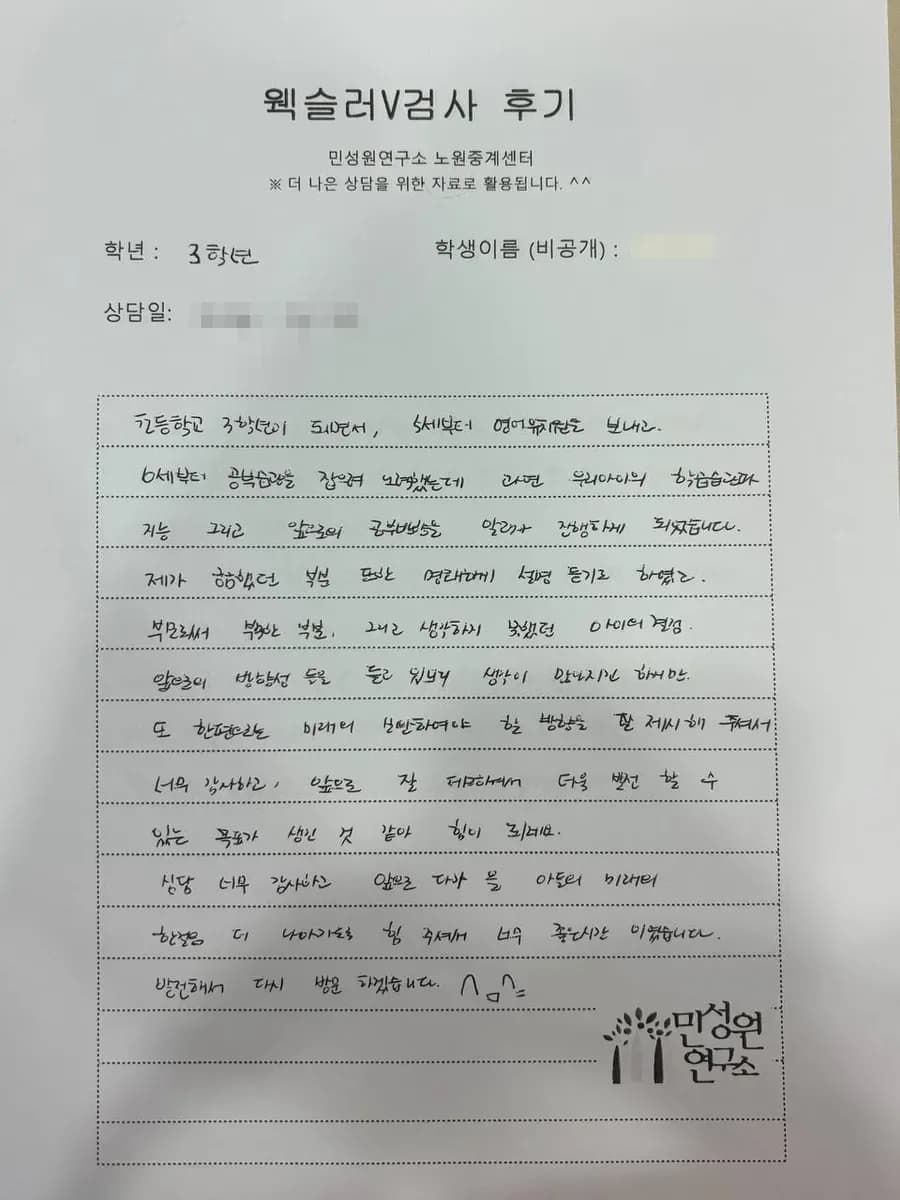 웩슬러V검사 후기
민성원연구소 노원중계센터
※ 더 나은 상담을 위한 자료로 활용됩니다. ^^
학년 : 3학년
학생이름 (비공개) :
상담일:
초등학교 3학년이 되면서, 5세부터 영어유치원을 보내고.
6세부터 공부습관을 잡으려 노력했는데 과연 우리아이의 학습습관과
지능 그리고 앞으로의 공부방법을 알려고 진행하게 되었습니다.
제가 궁금했던 부분 또한 명쾌하게 설명 듣기도 하였고.
부모로써 부족한 부분, 그리고 생각하지 못했던 아이의 결점.
앞으로의 방향성 등을 듣고 생각이 많아지긴 하지만.
또 한편으로는 미래의 할 방향을 잘 제시해 주셔서
너무 감사하고, 앞으로 잘 더욱 발전 할 수
있는 목표가 생긴 것 같아 힘이 되네요.
상담 너무 감사하고 앞으로 아들의 미래의
한걸음 더 나아가도록 힘 주셔서 너무 좋은시간 이였습니다.
발전해서 다시 방문 하겠습니다. ^ㅁ^=
민성원
연구소